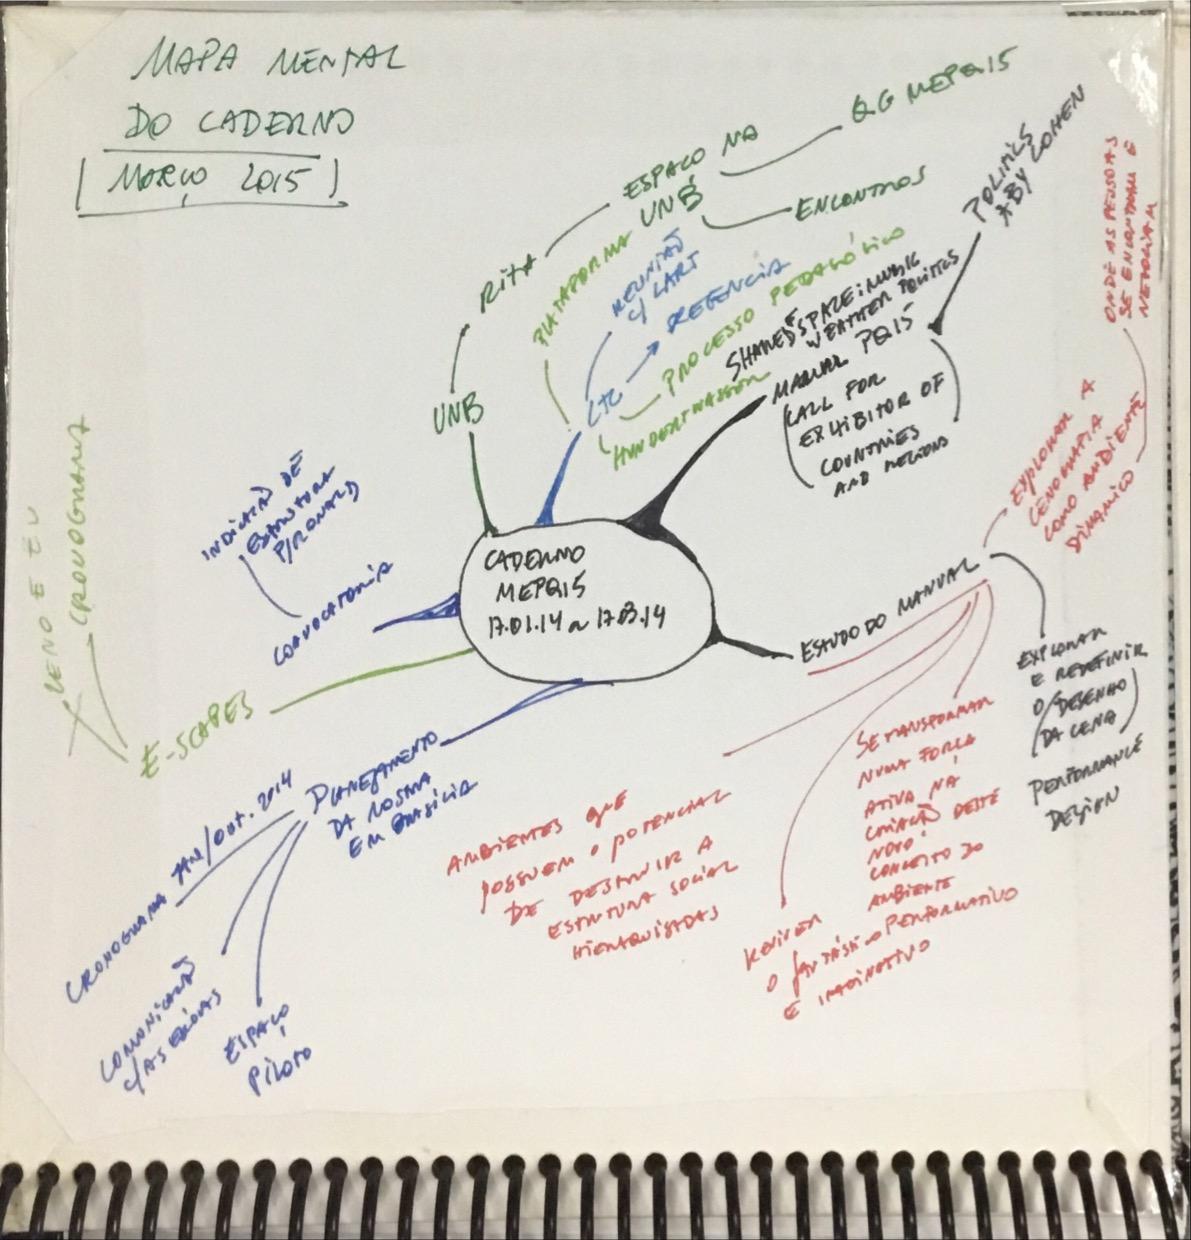 MAPA MENTAL
DO CADERNO
(MARÇO 2015)
QG MEPQ15
ESPAÇO NA
UNB
ENCONTROS
RITA
UNB
PLATAFORMA
REUNIÃO
C/ LART
REGÊNCIA
LTC
PROCESSO PEDAGÓGICO
HUNDERTWASSER
SHAREDSPACE: MUSIC
WEATHER POLITICS
MANUAL PQ15
(CALL FOR
EXHIBITOR OF
COUNTRIES
AND REGIONS)
POLITICS
ABY COHEN
ONDE AS PESSOAS
SE ENCONTRAM E
NEGOCIAM
EXPLORAR A
CENOGRAFIA
COMO AMBIENTE
DINAMICO
CADERNO
MEPQ15
17.01.14 a 17.03.14
ESTUDO DO MANUAL
EXPLORAR
E REDEFINIR
O (DESENHO
DA CENA)
PERFORMANCE
DESIGN
SE TRANSFORMAR
NUMA FORÇA
ATIVA NA
CRIAÇÃO DESTE
NOVO
CONCEITO DO
AMBIENTE
REVIVER
O FANTÁSTICO PERFORMATIVO
E IMAGINATIVO
AMBIENTES QUE
POSSUEM O POTENCIAL
DE DESTRUIR A
ESTRUTURA SOCIAL
HIERARQUISADAS
INDICAÇÃO DE
ESTRUTURA
P/ RONALD
CONVOCATORIA
E-SCAPES
CRONOGRAMA
LENO E EU
PLANEJAMENTO
DA MOSTRA
EM BRASÍLIA
CRONOGRAMA JAN/OUT. 2014
COMUNICAÇÃO
C/AS
ESPAÇO
PILOTO